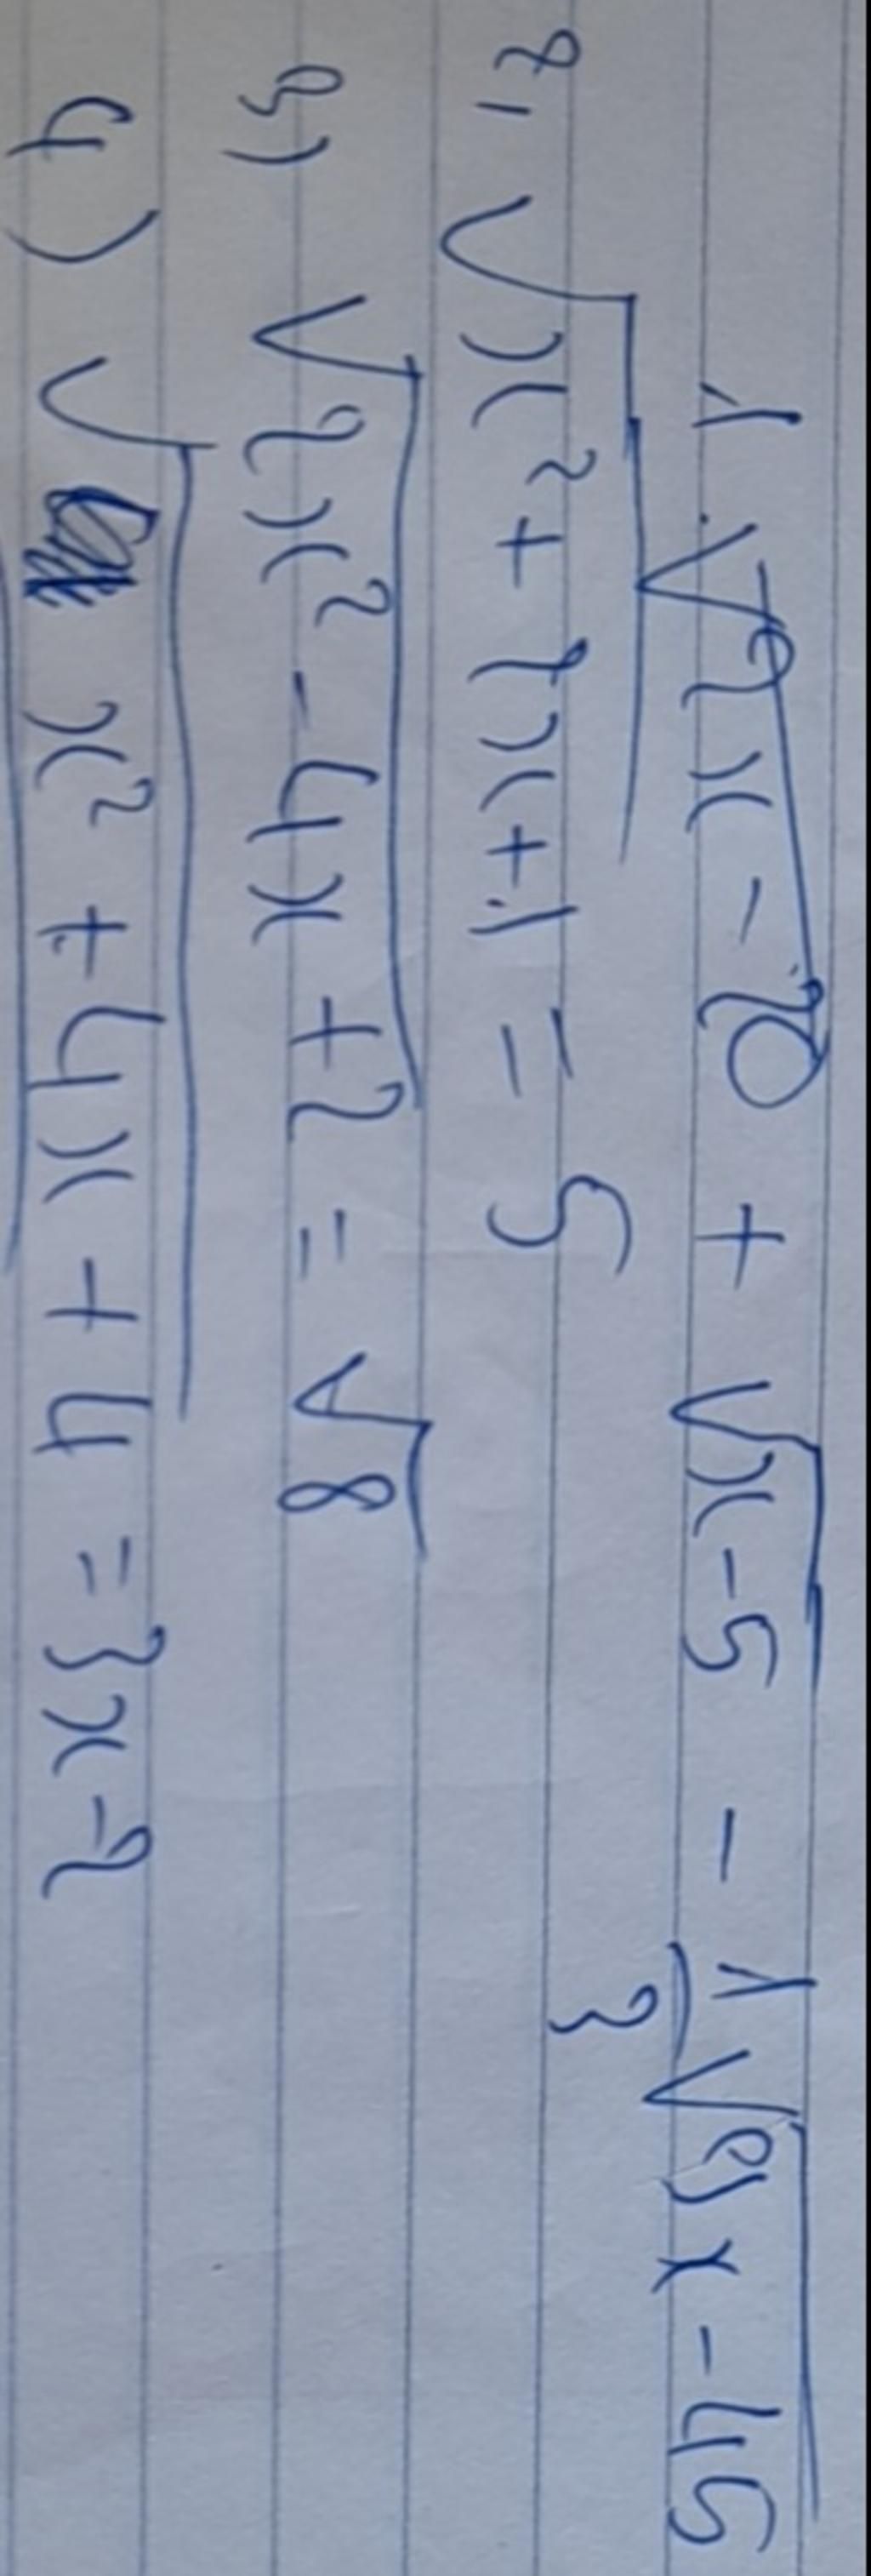 1. √2x - 20 + √x-5 - 1/3 √9x - 45
2, √x² + 2x + 1 = 5
3) √2x² - 4x + 2 = √8
4) √x² + 4x + 4 = 3x - 2